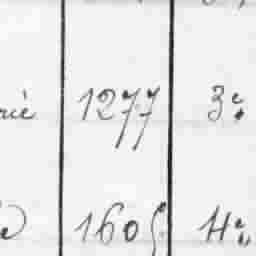 1277 3e
1605 4e